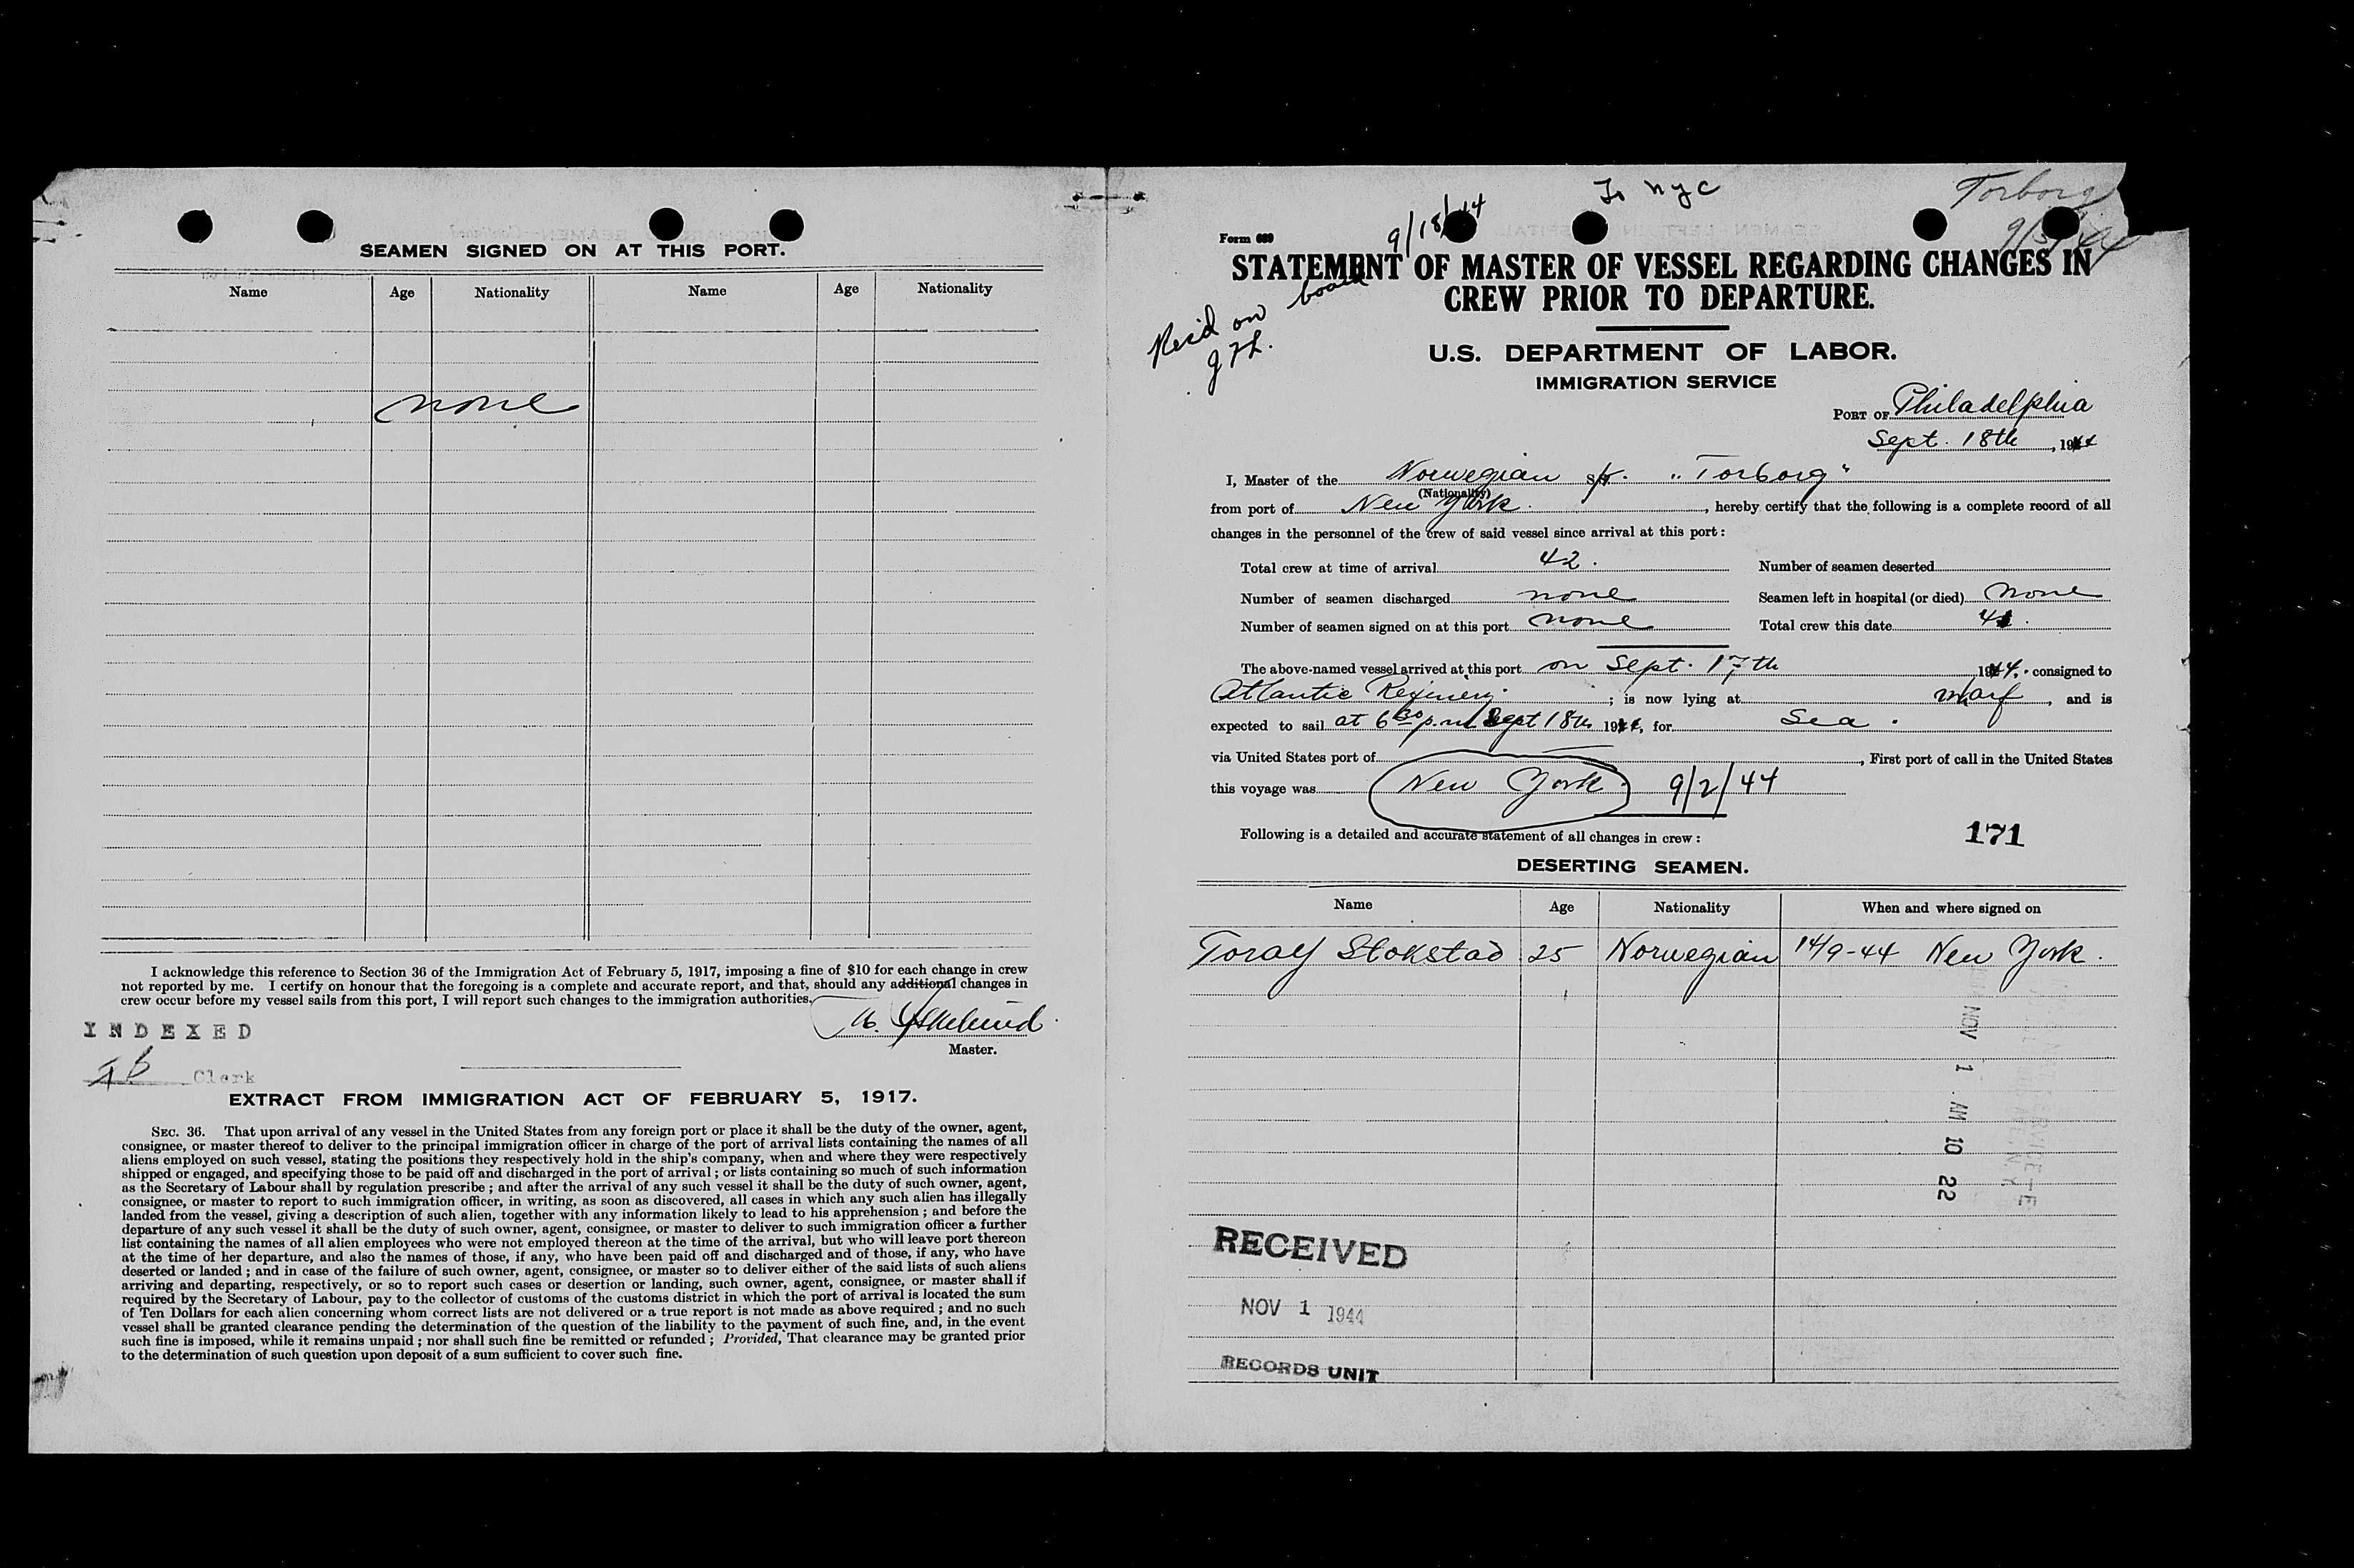 SEAMEN SIGNED ON AT THIS PORT.
Name Age Nationality Name Age Nationality
none
I acknowledge this reference to Section 36 of the Immigration Act of February 5, 1917, imposing a fine of $10 for each change in crew
not reported by me. I certify on honour that the foregoing is a complete and accurate report, and that, should any additional changes in
crew occur before my vessel sails from this port, I will report such changes to the immigration authorities.
INDEXED
Master.
Clerk
EXTRACT FROM IMMIGRATION ACT OF FEBRUARY 5, 1917.
SEC. 36. That upon arrival of any vessel in the United States from any foreign port or place it shall be the duty of the owner, agent,
consignee, or master thereof to deliver to the principal immigration officer in charge of the port of arrival lists containing the names of all
aliens employed on such vessel, stating the positions they respectively hold in the ship's company, when and where they were respectively
shipped or engaged, and specifying those to be paid off and discharged in the port of arrival; or lists containing so much of such information
as the Secretary of Labour shall by regulation prescribe; and after the arrival of any such vessel it shall be the duty of such owner, agent,
consignee, or master to report to such immigration officer, in writing, as soon as discovered, all cases in which any such alien has illegally
landed from the vessel, giving a description of such alien, together with any information likely to lead to his apprehension; and before the
departure of any such vessel it shall be the duty of such owner, agent, consignee, or master to deliver to such immigration officer a further
list containing the names of all alien employees who were not employed thereon at the time of the arrival, but who will leave port thereon
at the time of her departure, and also the names of those, if any, who have been paid off and discharged and of those, if any, who have
deserted or landed; and in case of the failure of such owner, agent, consignee, or master so to deliver either of the said lists of such aliens
arriving and departing, respectively, or so to report such cases or desertion or landing, such owner, agent, consignee, or master shall if
required by the Secretary of Labour, pay to the collector of customs of the customs district in which the port of arrival is located the sum
of Ten Dollars for each alien concerning whom correct lists are not delivered or a true report is not made as above required; and no such
vessel shall be granted clearance pending the determination of the question of the liability to the payment of such fine, and, in the event
such fine is imposed, while it remains unpaid; nor shall such fine be remitted or refunded; Provided, That clearance may be granted prior
to the determination of such question upon deposit of a sum sufficient to cover such fine.
To NYC
Torborg
Form 689
9/18/44
STATEMENT OF MASTER OF VESSEL REGARDING CHANGES IN
CREW PRIOR TO DEPARTURE.
Recd on board
U.S. DEPARTMENT OF LABOR.
IMMIGRATION SERVICE
PORT OF Philadelphia
Sept. 18th, 1944
I, Master of the Norwegian "Torborg"
(Nationality)
from port of New York, hereby certify that the following is a complete record of all
changes in the personnel of the crew of said vessel since arrival at this port:
Total crew at time of arrival 42. Number of seamen deserted
Number of seamen discharged none Seamen left in hospital (or died) none
Number of seamen signed on at this port none Total crew this date 41.
The above-named vessel arrived at this port on Sept. 17th 1944. consigned to
Atlantic Refinery; is now lying at warf, and is
expected to sail at 6 30 p.m. Sept 18th 1944, for Sea.
via United States port of, First port of call in the United States
this voyage was New York 9/2/44
Following is a detailed and accurate statement of all changes in crew:
171
DESERTING SEAMEN.
Name Age Nationality When and where signed on
Toralf Stokstad 25 Norwegian 14/9-44 New York.
NOV 1 AM 10 22
RECEIVED
NOV 1 1944
RECORDS UNIT